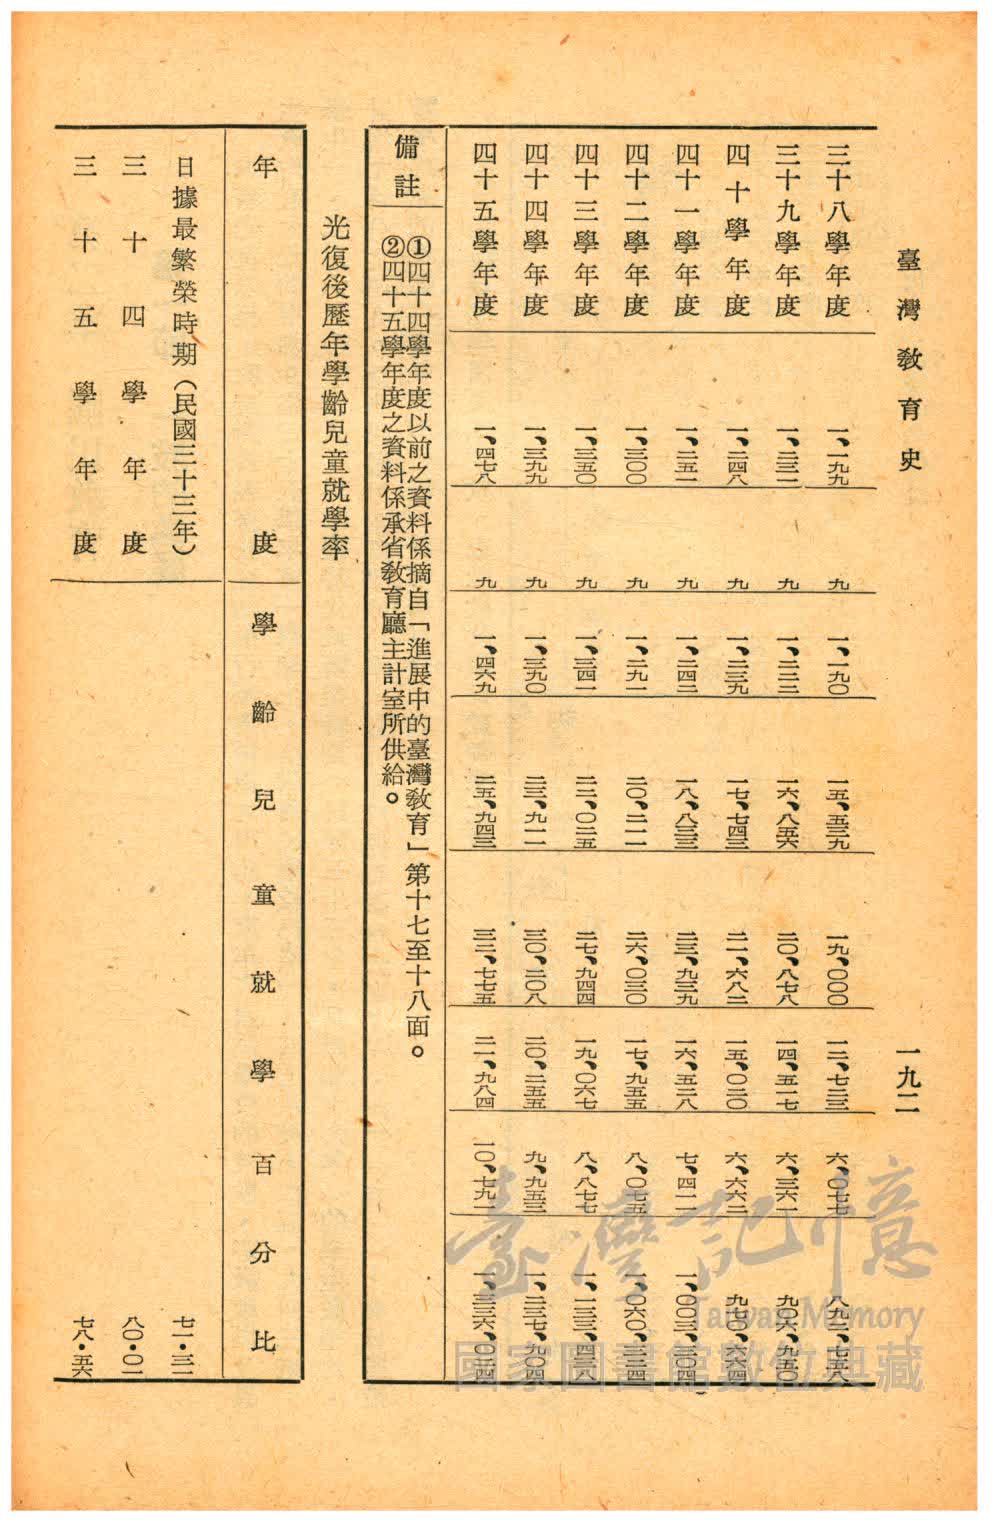 臺灣教育史
一九二
三十八學年度 一、一九九 九 一、一九〇 一五、五三九 一九、〇〇〇 一二、七二三 六、〇七七 八九二、七五八
三十九學年度 一、二三一 九 一、二二二 一六、八五六 二〇、八七八 一四、五一七 六、三六一 九〇六、九五〇
四十學年度 一、二四八 九 一、二三九 一七、七四三 二一、六八二 一五、〇二〇 六、六六二 九七〇、六六四
四十一學年度 一、二五一 九 一、二四二 一八、八三三 二三、九三九 一六、五二八 七、四一一 一、〇〇三、三〇四
四十二學年度 一、三〇〇 九 一、二九一 二〇、二一一 二六、〇三〇 一七、九五五 八、〇七五 一、〇六〇、三二四
四十三學年度 一、三五〇 九 一、三四一 二二、〇二五 二七、九四四 一九、〇六七 八、八七七 一、一三三、四三八
四十四學年度 一、三九九 九 一、三九〇 二三、九一一 三〇、二〇八 二〇、二五五 九、九五三 一、二三七、九〇四
四十五學年度 一、四七八 九 一、四六九 二五、九四三 三二、七七五 二一、九八四 一〇、七九一 一、三三六、〇三四
備註
①四十四學年度以前之資料係摘自「進展中的臺灣教育」第十七至十八面。
②四十五學年度之資料係承省教育廳主計室所供給。
光復後歷年學齡兒童就學率
年度 學齡兒童就學百分比
日據最繁榮時期（民國三十三年） 七一・三一
三十四學年度 八〇・〇一
三十五學年度 七八・五六
臺灣記憶
Taiwan Memory
國家圖書館數位典藏